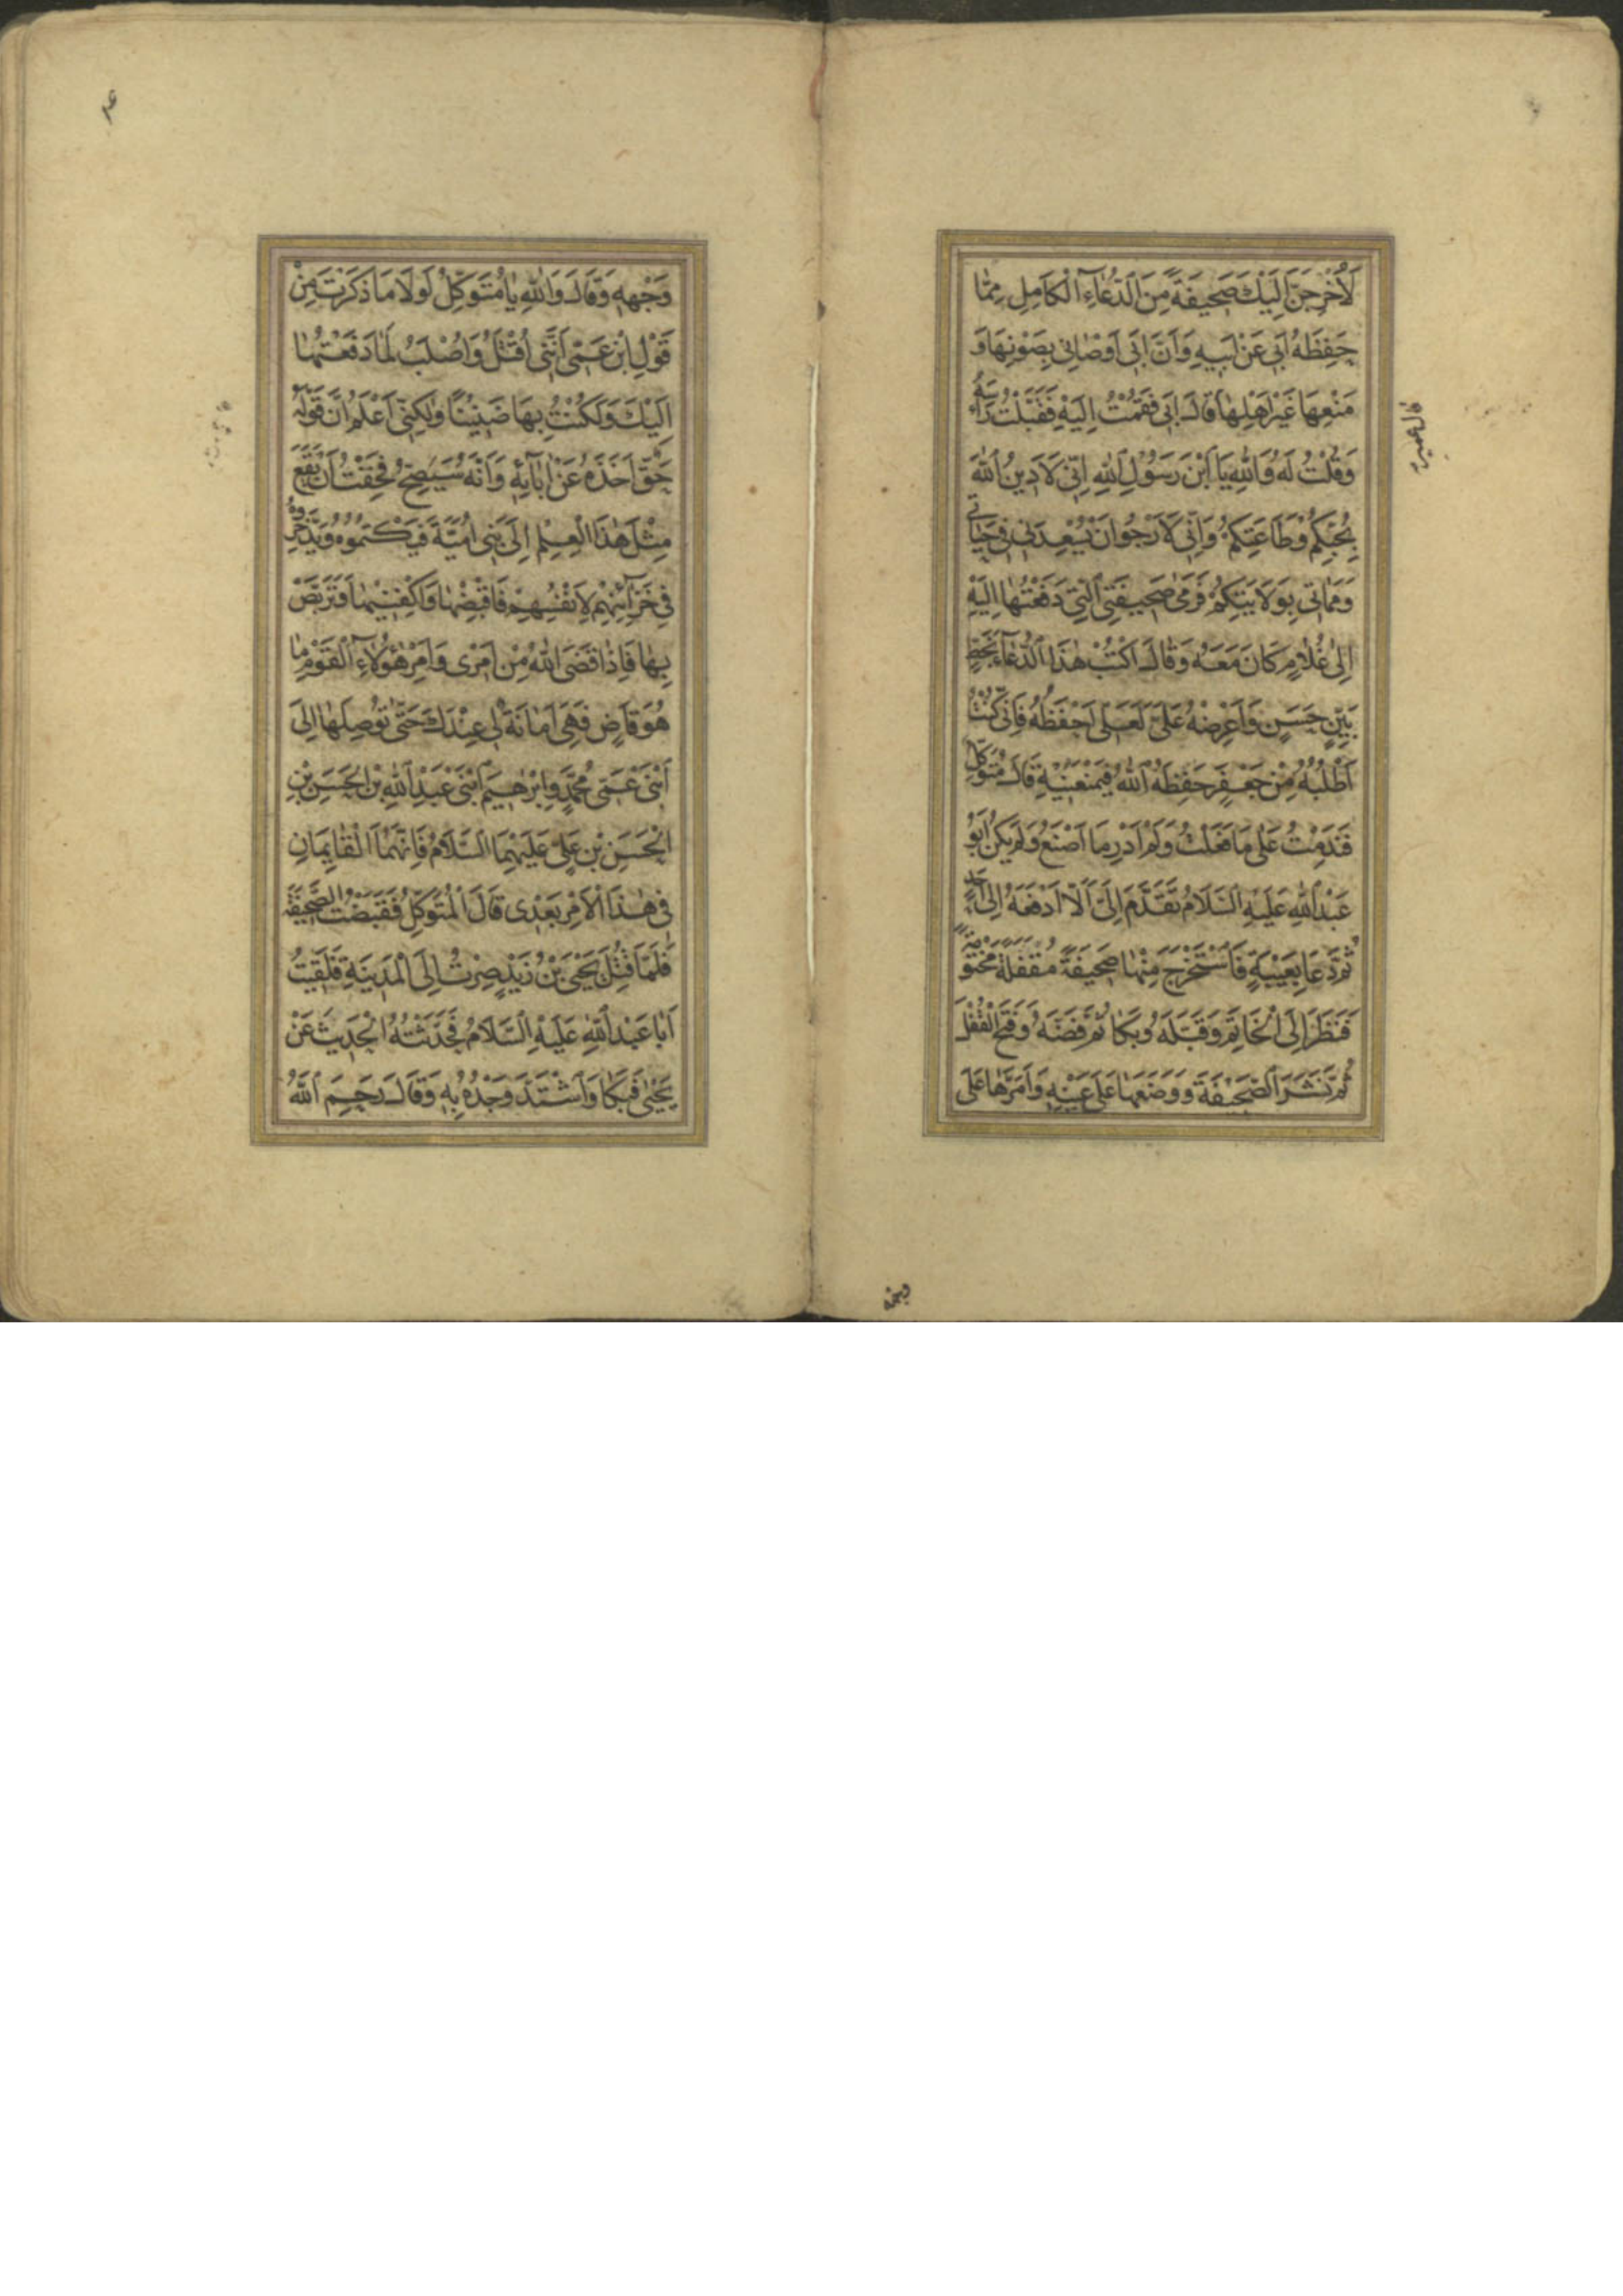 لَأُخْرِجَنَّ إِلَيْكَ صَحِيفَةً مِنَ الدُّعَاءِ الْكَامِلِ مِمَّا
حَفِظَهُ أَبِي عَنْ أَبِيهِ وَأَنَّ أَبِي أَوْصَانِي بِصَوْنِهَا وَ
مَنْعِهَا غَيْرَ أَهْلِهَا قَالَ أَبِي فَقُمْتُ إِلَيْهِ فَقَبَّلْتُ رَأْسَهُ
وَقُلْتُ لَهُ وَاللهِ يَا ابْنَ رَسُولِ اللهِ إِنِّي لَأَدِينُ اللهَ
بِحُبِّكُمْ وَطَاعَتِكُمْ وَإِنِّي لَأَرْجُو أَنْ يُسْعِدَنِي فِي حَيَاتِي
وَمَمَاتِي بِوَلَايَتِكُمْ فَرَمَى صَحِيفَتِيَ الَّتِي دَفَعْتُهَا إِلَيْهِ
إِلَى غُلَامٍ كَانَ مَعَهُ وَقَالَ اكْتُبْ هَذَا الدُّعَاءَ بِخَطٍّ
بَيِّنٍ حَسَنٍ وَاعْرِضْهُ عَلَيَّ لَعَلِّي أَحْفَظُهُ فَإِنِّي كُنْتُ
أَطْلُبُهُ مِنْ جَعْفَرٍ حَفِظَهُ اللهُ فَيَمْنَعُنِيهِ قَالَ مُتَوَكِّلٌ
فَنَدِمْتُ عَلَى مَا فَعَلْتُ وَلَمْ أَدْرِ مَا أَصْنَعُ وَلَمْ يَكُنْ أَبُو
عَبْدِ اللهِ عَلَيْهِ السَّلَامُ تَقَدَّمَ إِلَيَّ أَلَّا أَدْفَعَهُ إِلَى أَحَدٍ
ثُمَّ دَعَا بِعَيْبَةٍ فَاسْتَخْرَجَ مِنْهَا صَحِيفَةً مُقْفَلَةً مَخْتُومَةً
فَنَظَرَ إِلَى الْخَاتَمِ وَقَبَّلَهُ وَبَكَا ثُمَّ فَضَّهُ وَفَتَحَ الْقُفْلَ
ثُمَّ نَشَرَ الصَّحِيفَةَ وَوَضَعَهَا عَلَى عَيْنِهِ وَأَمَرَّهَا عَلَى
وَجْهِهِ وَقَالَ وَاللهِ يَا مُتَوَكِّلُ لَوْلَا مَا ذَكَرْتَ مِنْ
قَوْلِ ابْنِ عَمِّي أَنَّنِي أُقْتَلُ وَأُصْلَبُ لَمَا دَفَعْتُهَا
إِلَيْكَ وَلَكُنْتُ بِهَا ضَنِينًا وَلَكِنِّي أَعْلَمُ أَنَّ قَوْلَهُ
حَقٌّ أَخَذَهُ عَنْ آبَائِهِ وَأَنَّهُ سَيَصِحُّ فَخِفْتُ أَنْ يَقَعَ
مِثْلُ هَذَا الْعِلْمِ إِلَى بَنِي أُمَيَّةَ فَيَكْتُمُوهُ وَيَدَّخِرُوهُ
فِي خَزَائِنِهِمْ لِأَنْفُسِهِمْ فَاقْبِضْهَا وَاكْفِنِيهَا وَتَرَبَّصْ
بِهَا فَإِذَا قَضَى اللهُ مِنْ أَمْرِي وَأَمْرِ هَؤُلَاءِ الْقَوْمِ مَا
هُوَ قَاضٍ فَهِيَ أَمَانَةٌ لِي عِنْدَكَ حَتَّى تُوصِلَهَا إِلَى
ابْنَيْ عَمِّي مُحَمَّدٍ وَإِبْرَهِيمَ ابْنَيْ عَبْدِ اللهِ بْنِ الْحَسَنِ بْنِ
الْحَسَنِ بْنِ عَلِيٍّ عَلَيْهِمَا السَّلَامُ فَإِنَّهُمَا الْقَايِمَانِ
فِي هَذَا الْأَمْرِ بَعْدِي قَالَ الْمُتَوَكِّلُ فَقَبَضْتُ الصَّحِيفَةَ
فَلَمَّا قُتِلَ يَحْيَى بْنُ زَيْدٍ صِرْتُ إِلَى الْمَدِينَةِ فَلَقِيتُ
أَبَا عَبْدِ اللهِ عَلَيْهِ السَّلَامُ فَحَدَّثْتُهُ الْحَدِيثَ عَنْ
يَحْيَى فَبَكَا وَاشْتَدَّ وَجْدُهُ بِهِ وَقَالَ رَحِمَ اللهُ